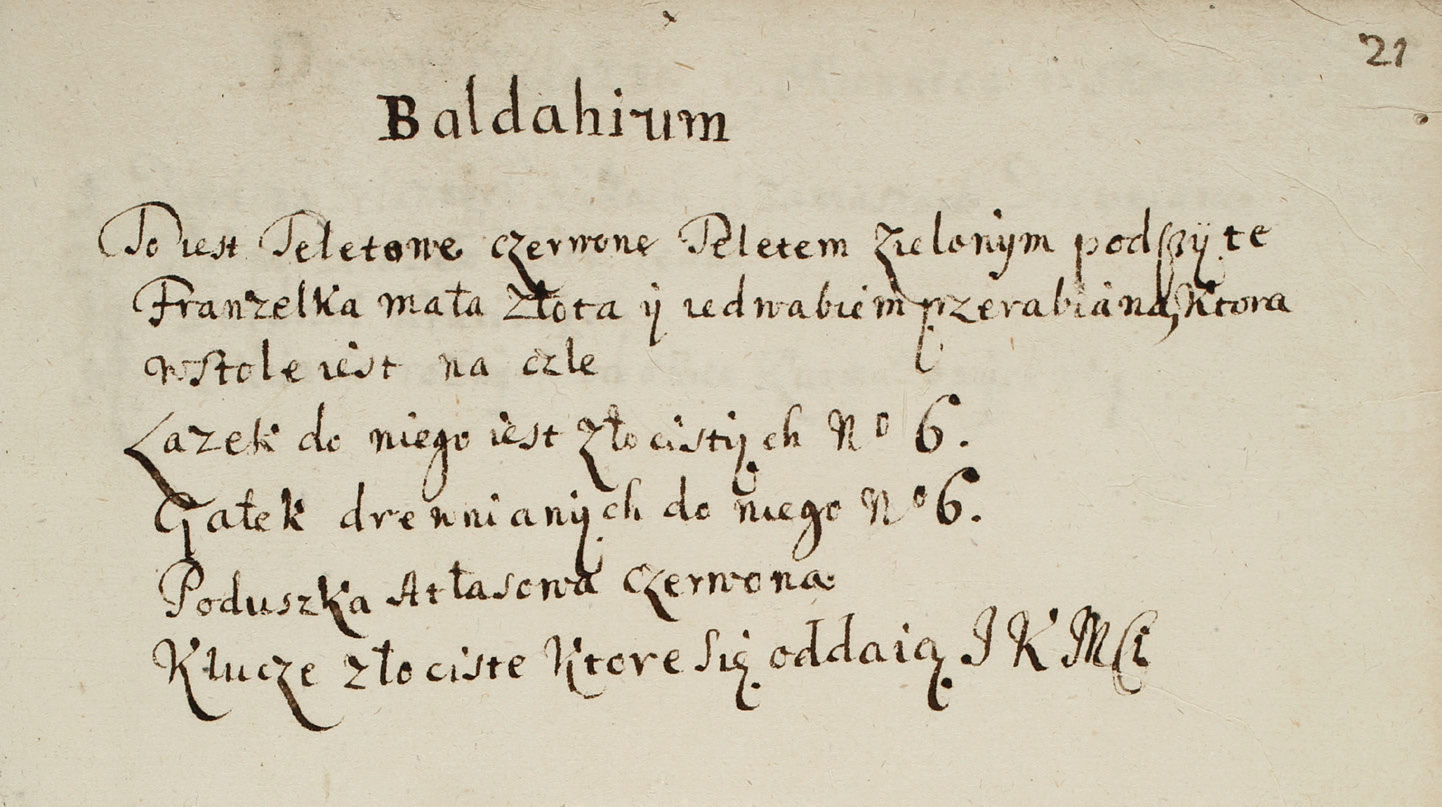 21
Baldahirum
To iest Teletowe czerwone Teletem zielonÿm podszÿte
Franzelka mała złota ÿ iedwabiem przerabiana, Ktora
w stole iest na czle
Lazek do niego iest złocistÿch No 6.
Gałek drewnianÿch do niego No 6.
Poduszka Atłasowa czerwona
Klucze złociste Ktore się oddaią J K Mći